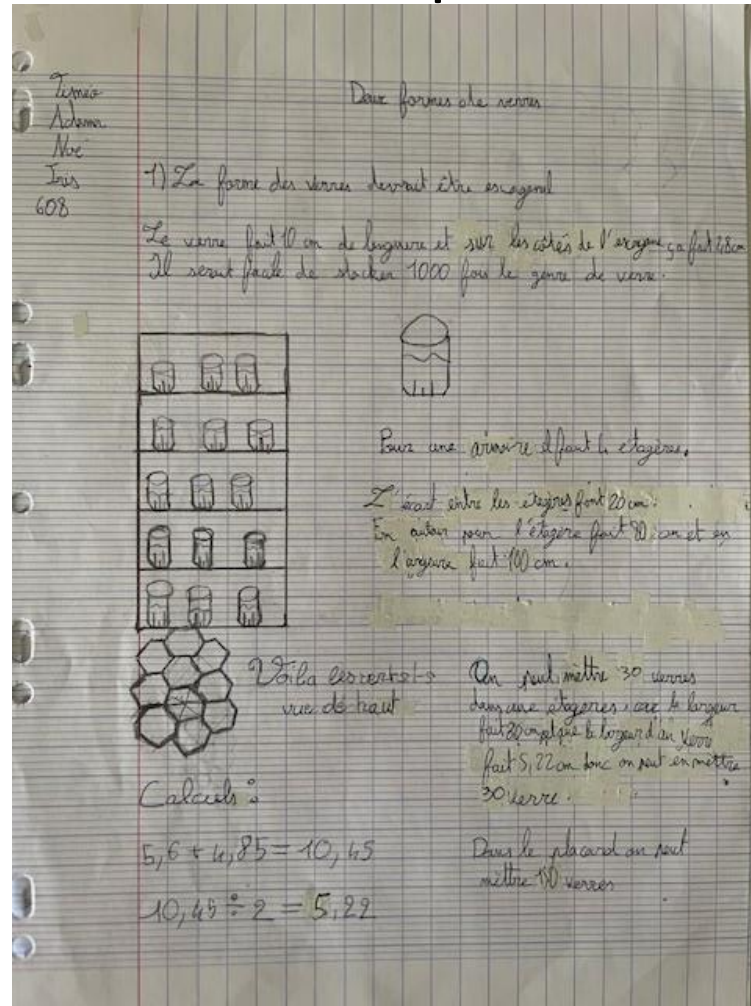 Timéo
Adam
Noé
Iris
608
Deux formes de verres
1) La forme des verres devrait être escagonal
Le verre fait 10 cm de longuere et sur les côtés de l'exagone ça fait 2,8cm
Il serait facile de stocker 1000 fois le genre de verre.
Pour une armoire il faut 4 étagères.
L'écart entre les étagères font 20 cm.
En auteur pour l'étagère fait 80 cm et en
l'argeure fait 100 cm.
Voila les verres
vue de haut
On peut mettre 30 verres
dans une étagères, car la largeur
fait 20 cm et que la largeur d'un verre
fait 5,22 cm donc on peut en mettre
30 verre.
Calculs :
5,6 + 4,85 = 10,45
10,45 ÷ 2 = 5,22
Dans le placard on peut
mettre 150 verres